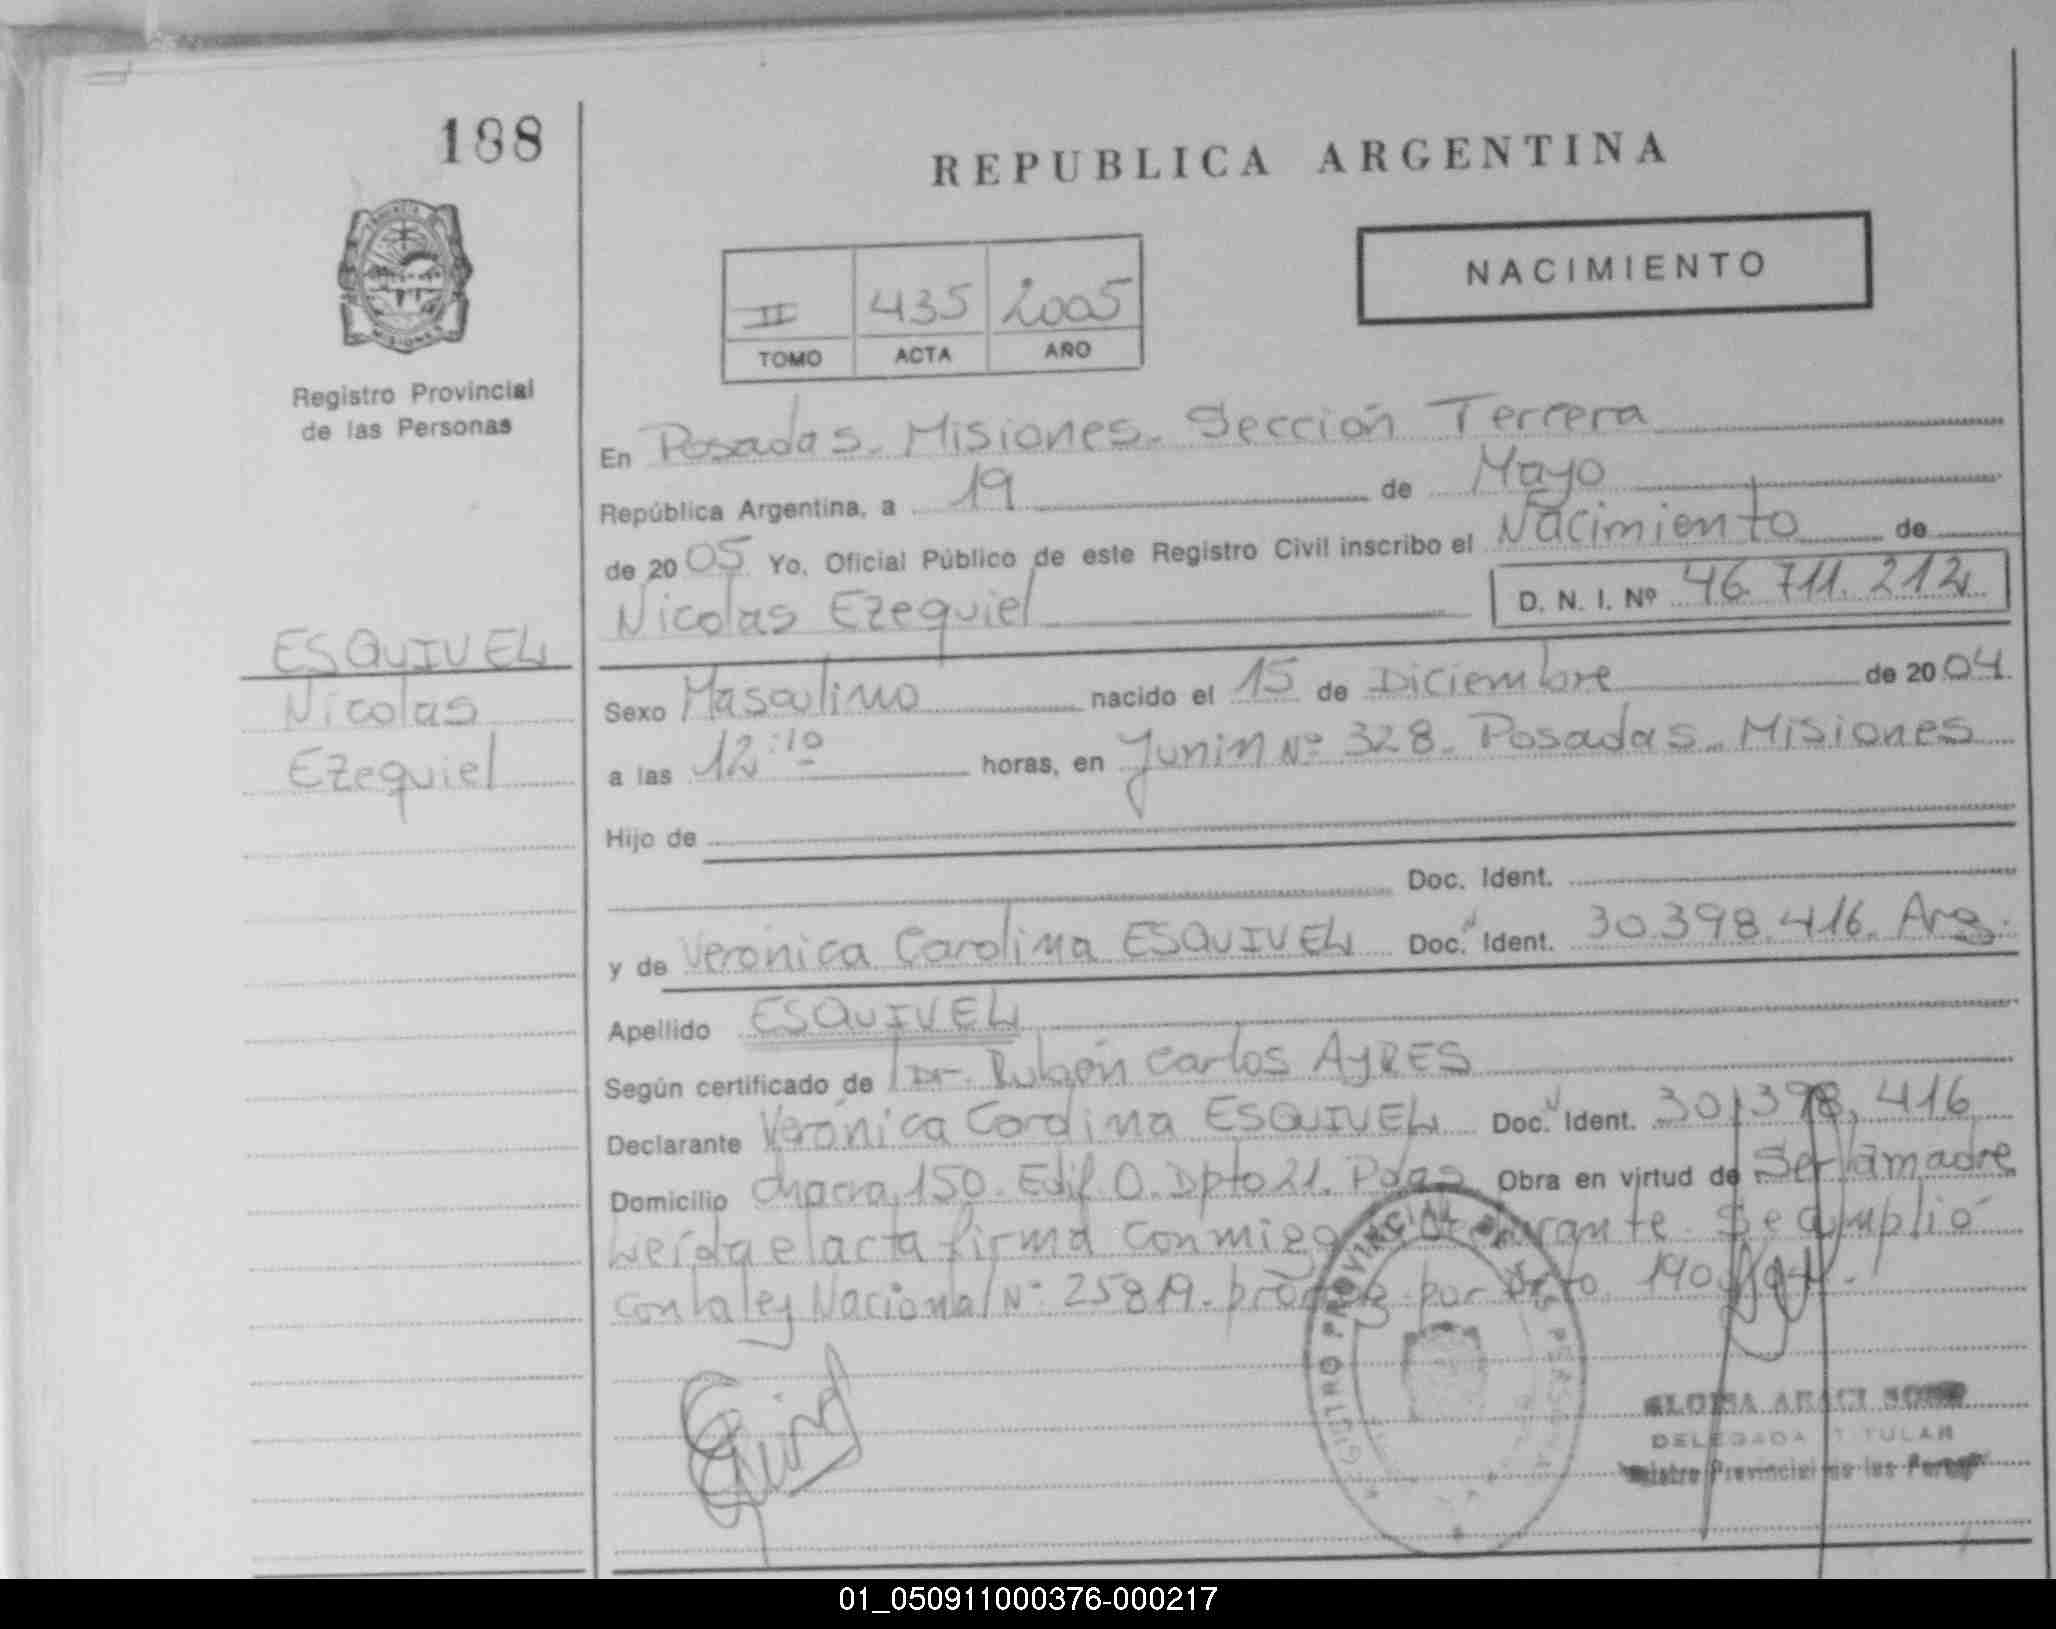 188
REPUBLICA ARGENTINA
NACIMIENTO
II 435 2005
TOMO ACTA AÑO
Registro Provincial
de las Personas
En Posadas. Misiones. Sección Tercera
República Argentina, a 19 de Mayo
de 2005 Yo, Oficial Público de este Registro Civil inscribo el Nacimiento de
Nicolas Ezequiel D. N. I. Nº 46.711.212
ESQUIVEL
Nicolas
Ezequiel
Sexo Masculino nacido el 15 de Diciembre de 2004
a las 12:10 horas, en Junin Nº 328. Posadas. Misiones
Hijo de
Doc. Ident.
y de Verónica Carolina ESQUIVEL Doc. Ident. 30.398.416. Arg.
Apellido ESQUIVEL
Según certificado de Dr. Rubén Carlos AYRES
Declarante Verónica Carolina ESQUIVEL Doc. Ident. 30.398.416
Domicilio chacra 150. Edif. O. Dpto 21. Pdas Obra en virtud de Ser la madre
Leída el acta firma conmigo declarante. Se cumplió
con la ley Nacional Nº 25819. por
REGISTRO PROVINCIAL DE LAS PERSONAS
DELEGADA TITULAR
Registro Provincial de las Personas
01_050911000376-000217